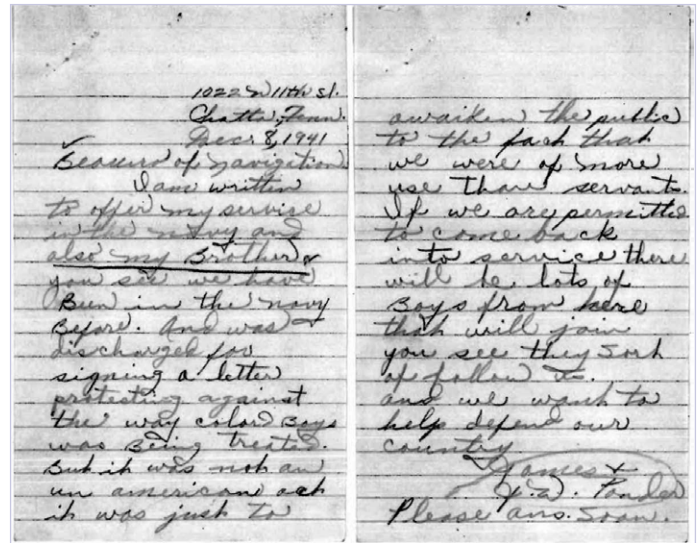 1022 W 11th St.
Chatta, Tenn.
Decr 8, 1941
Beauerd of Navigation
I am written
to offer my service
in the Navy and
also my Brother
you see we have
Bun in the Navy
Before. And was
discharged for
signing a letter
protecting against
the way color Boys
was Being treated.
But it was not an
un american act
it was just to
awaiken the public
to the fact that
we were of more
use than servants.
If we are permitted
to come back
into service there
will be lots of
Boys from here
that will join
you see they sort
of follow us.
and we want to
help defend our
country
James +
J.W. Ponder
Please ans. Soon.